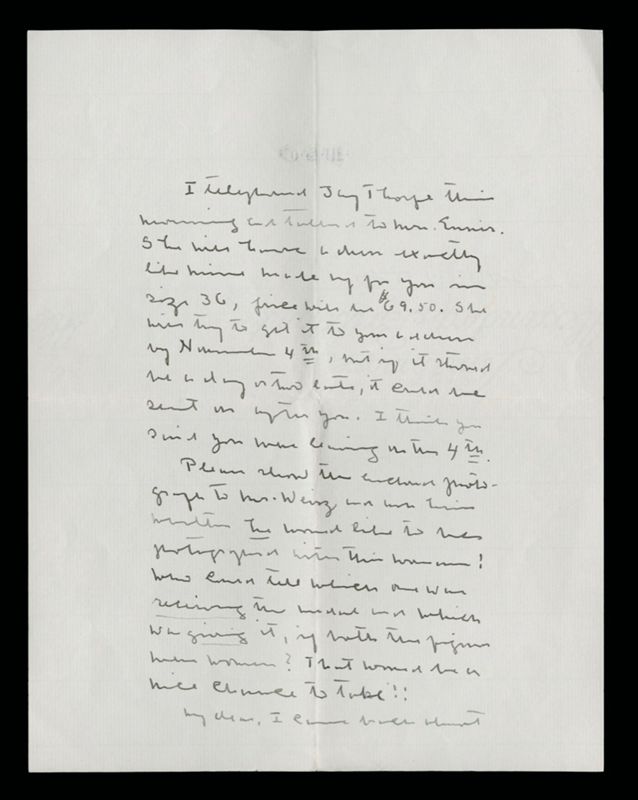 I telephoned Jay Thorpe this
morning and talked to Mrs. Ennis.
She will have a dress exactly
like mine made up for you in
size 36, price will be $69.50. She
will try to get it to your address
by November 4th, but if it should
be a day or two late, it could be
sent on after you. I think you
said you were leaving on the 4th.
Please show the enclosed photo-
graph to Mr. Weisz and ask him
whether he would like to be
photographed with this woman!
Who could tell which one was
receiving the medal and which
was giving it, if both the figures
were women? That would be a
nice chance to take!!
My dear, I came back about